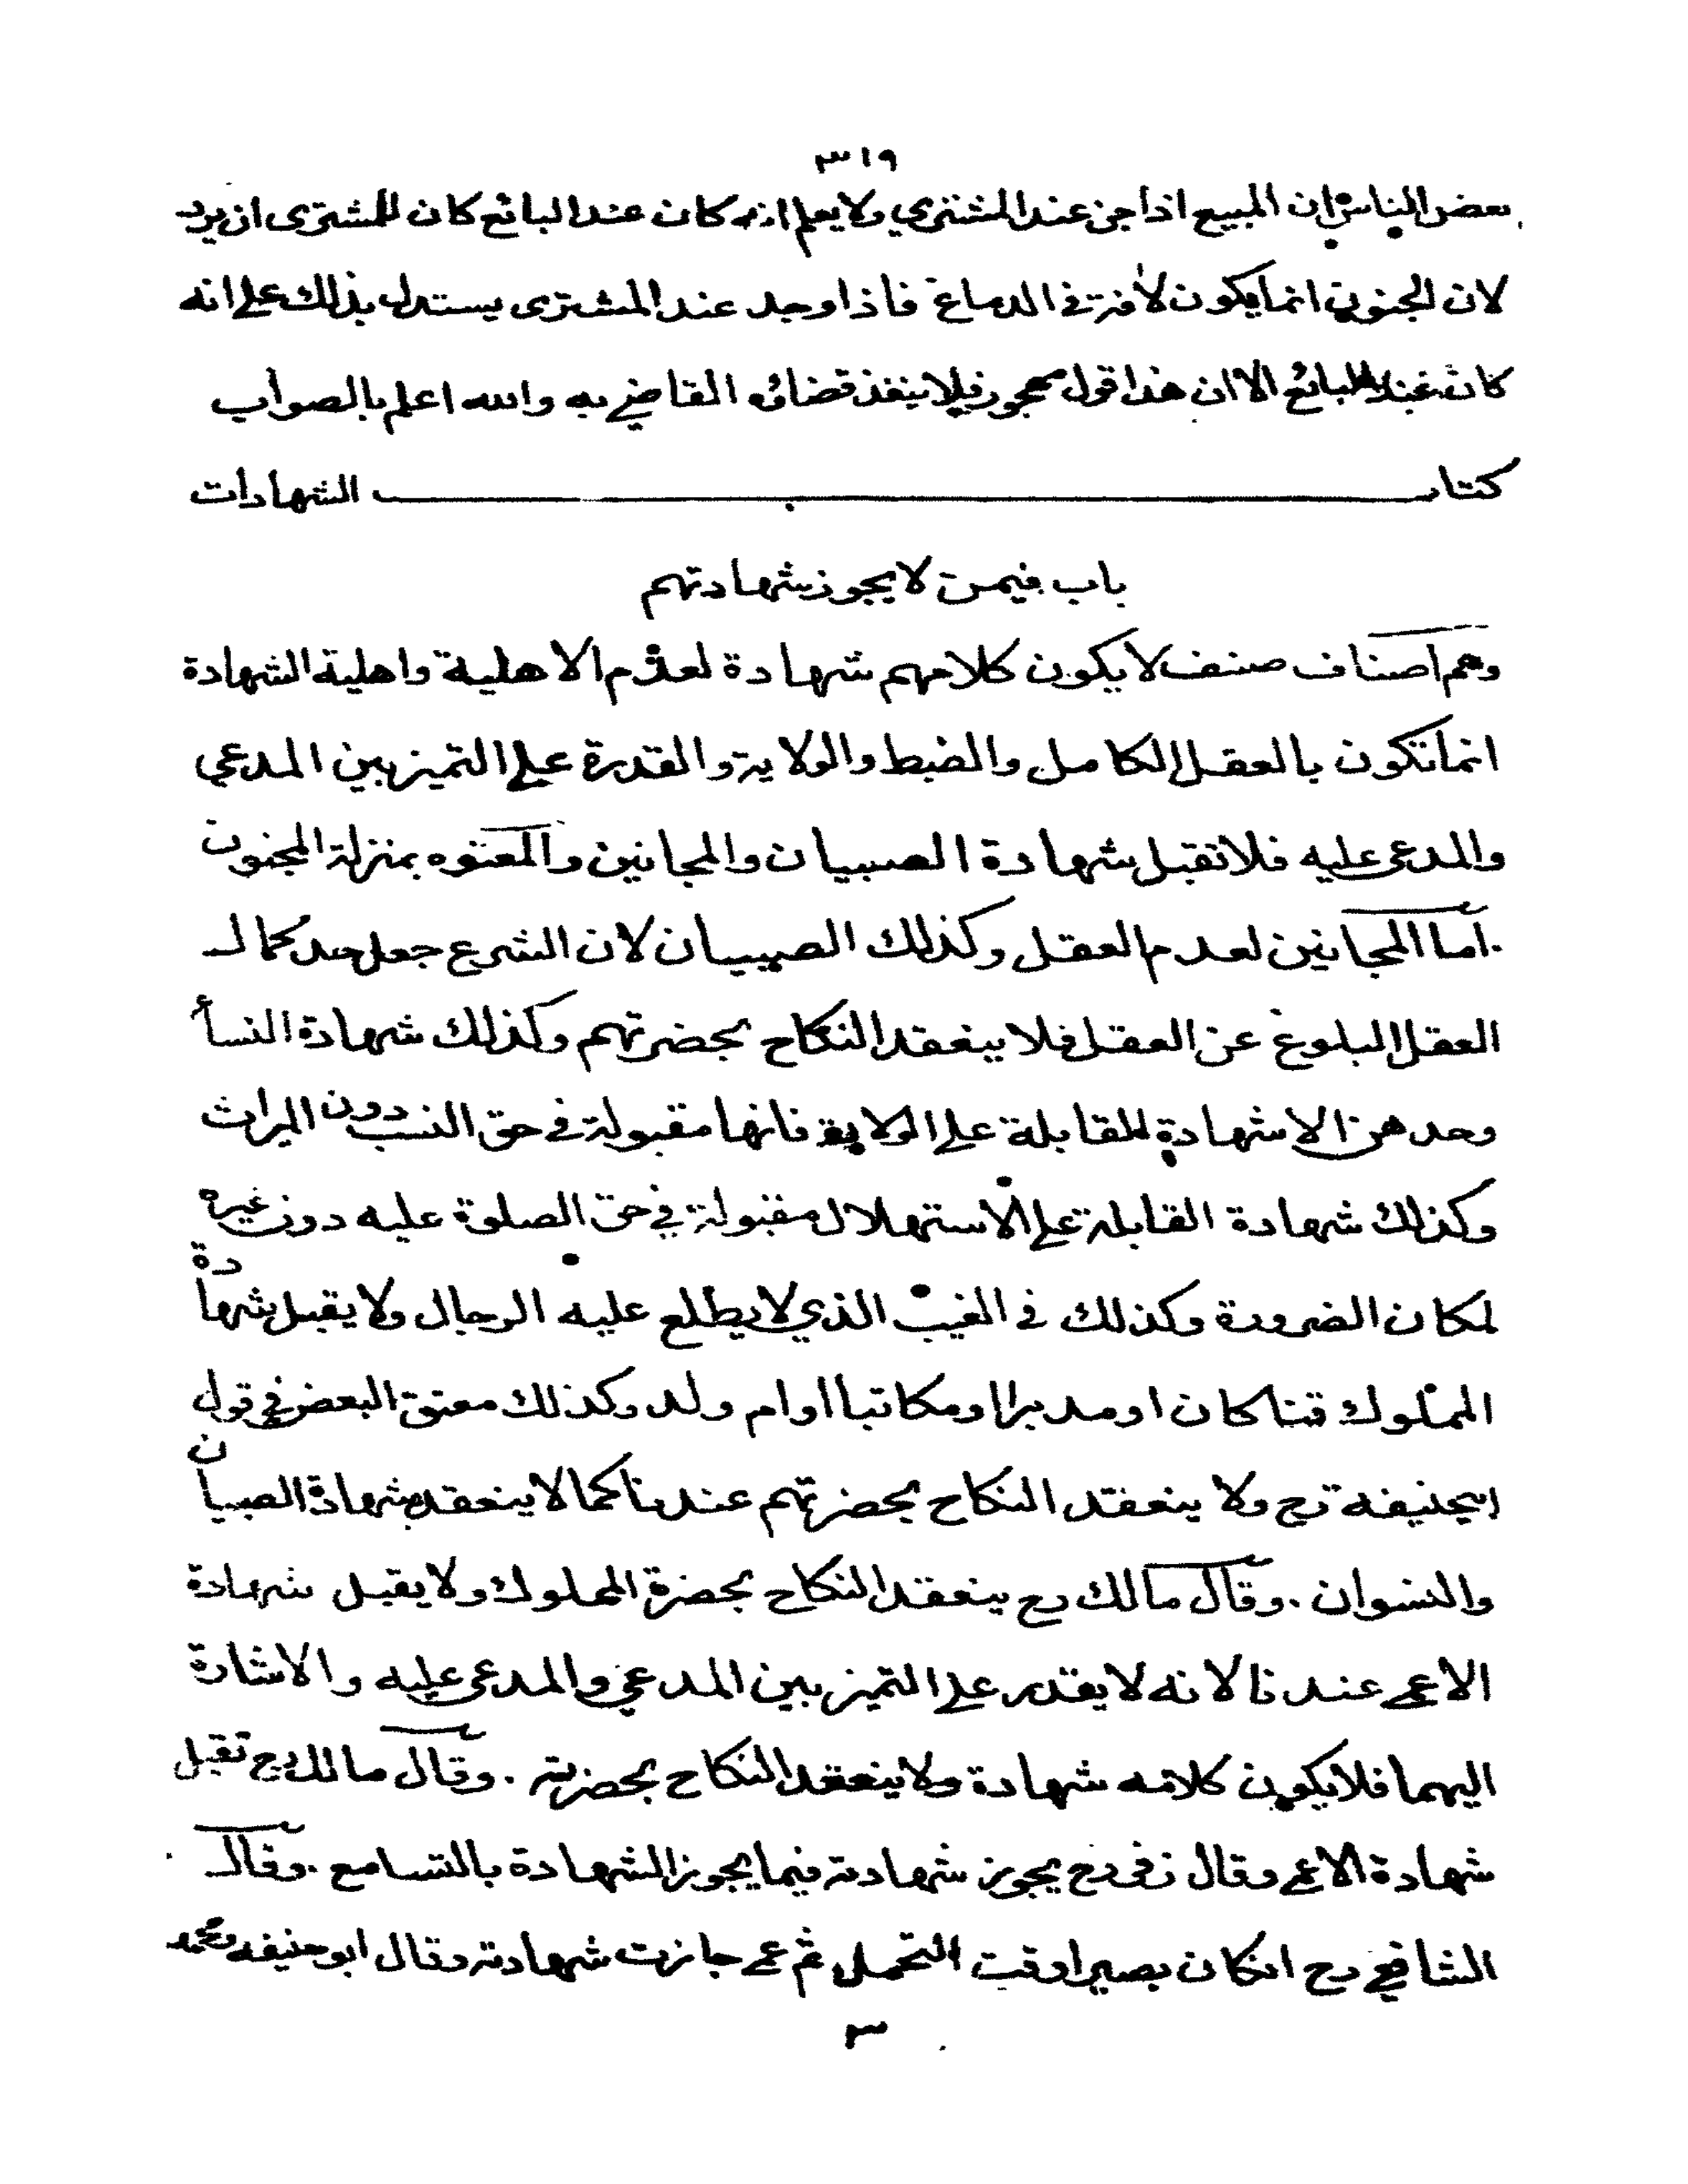 ٣١٩
بعض الناس ان المبيع اذا جن عند المشتري ولا يعلم انه كان عند البائع كان للمشترى ان يرد
لان الجنون انما يكون لآفة في الدماغ فاذا وجد عند المشترى يستدل بذلك على انه
كان عند البائع الا ان هذا قول مهجور فلا ينفذ قضائه القاضي به والله اعلم بالصواب
كتاب الشهادات
باب فيمن لا يجوز شهادتهم
وهم اصناف صنف لا يكون كلامهم شهادة لعدم الاهلية واهلية الشهادة
انما تكون بالعقل الكامل والضبط والولاية والقدرة على التميز بين المدعي
والمدعى عليه فلا تقبل شهادة الصبيان والمجانين والمعتوه بمنزلة المجنون
اما المجانين لعدم العقل وكذلك الصبيان لان الشرع جعل حد كمال
العقل البلوغ عن العقل فلا ينعقد النكاح بحضرتهم وكذلك شهادة النسأ
وحدهن الا شهادة للقابلة على الولاية فانها مقبولة في حق النسب دون الميراث
وكذلك شهادة القابلة على الاستهلال مقبولة في حق الصلوة عليه دون غيره
لمكان الضرورة وكذلك في الغيب الذي لا يطلع عليه الرجال ولا يقبل شهادة
المملوك قنا كان او مدبرا او مكاتبا او ام ولد وكذلك معتق البعض في قول
ابيحنيفه رح ولا ينعقد النكاح بحضرتهم عندنا كما لا ينعقد بشهادة الصبيان
والنسوان . وقال مالك رح ينعقد النكاح بحضرة المملوك ولا يقبل شهادة
الاعمى عندنا لانه لا يقدر على التميز بين المدعي والمدعى عليه والاشارة
اليهما فلا يكون كلامه شهادة ولا ينعقد النكاح بحضرته . وقال مالك رح تقبل
شهادة الاعمى وقال زفر رح يجوز شهادته فيما يجوز الشهادة بالتسامع . وقال
الشافعي رح انكان بصيرا وقت التحمل ثم عمى جازت شهادته وقال ابو حنيفه ومحمد
٣